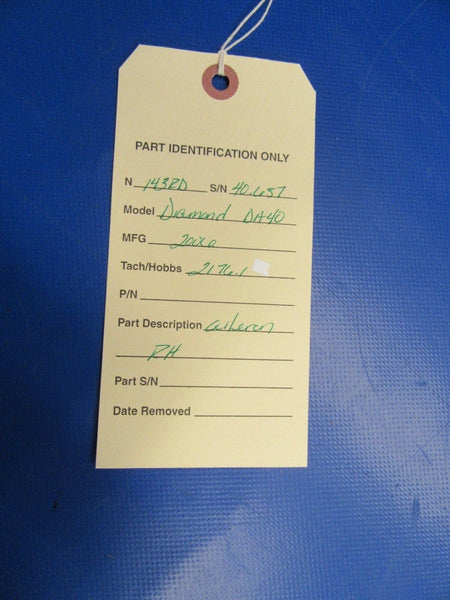 PART IDENTIFICATION ONLY
N 143RD S/N 40.657
Model Diamond DA40
MFG 2006
Tach/Hobbs 2176.1
P/N
Part Description aileron
RH
Part S/N
Date Removed